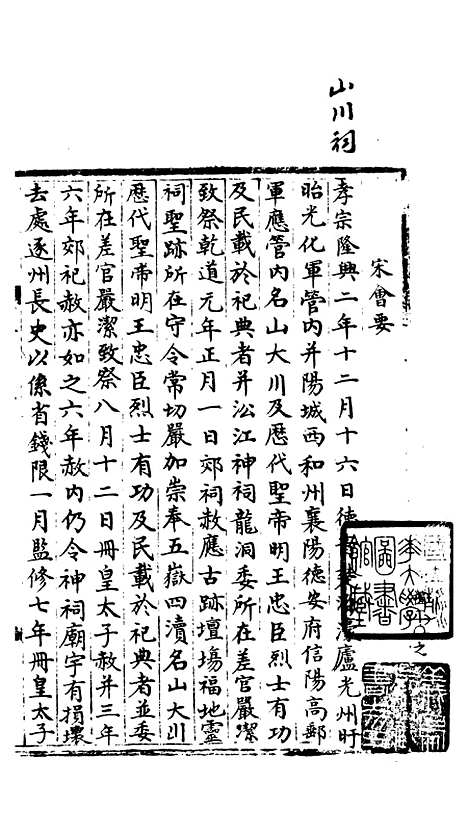 山川祠
宋會要
孝宗隆興二年十二月十六日德廬光州盱
眙光化軍管內并陽城西和州襄陽德安府信陽高郵
軍應管內名山大川及歷代聖帝明王忠臣烈士有功
及民載於祀典者并㳂江神祠龍洞委所在差官嚴潔
致祭乾道元年正月一日郊祠赦應古跡壇塲福地靈
祠聖跡所在守令常切嚴加崇奉五嶽四瀆名山大川
歷代聖帝明王忠臣烈士有功及民載於祀典者並委
所在差官嚴潔致祭八月十二日冊皇太子赦并三年
六年郊祀赦亦如之六年赦內仍令神祠廟宇有損壞
去處逐州長史以係省錢限一月監修七年冊皇太子
之